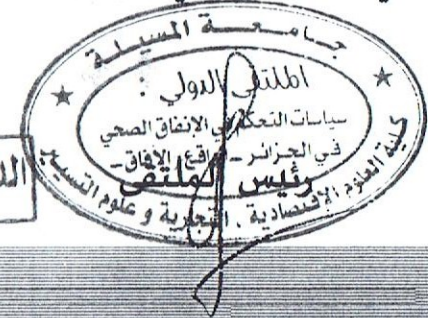 جامعة المسيلة
الملتقى الدولي :
سياسات التحكم في الإنفاق الصحي
في الجزائر - واقع الآفاق -
رئيس الملتقى
كلية العلوم الإقتصادية . التجارية و علوم التسيير